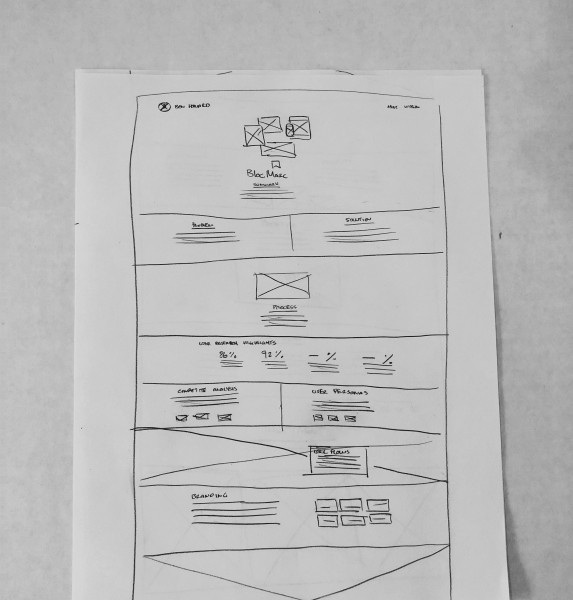 BEN HOWARD
BlocMarc
SUMMARY
PROBLEM
SOLUTION
PROCESS
USER RESEARCH HIGHLIGHTS
86% 92% — % — %
COMPETITIVE ANALYSIS
USER PERSONAS
USER FLOWS
BRANDING